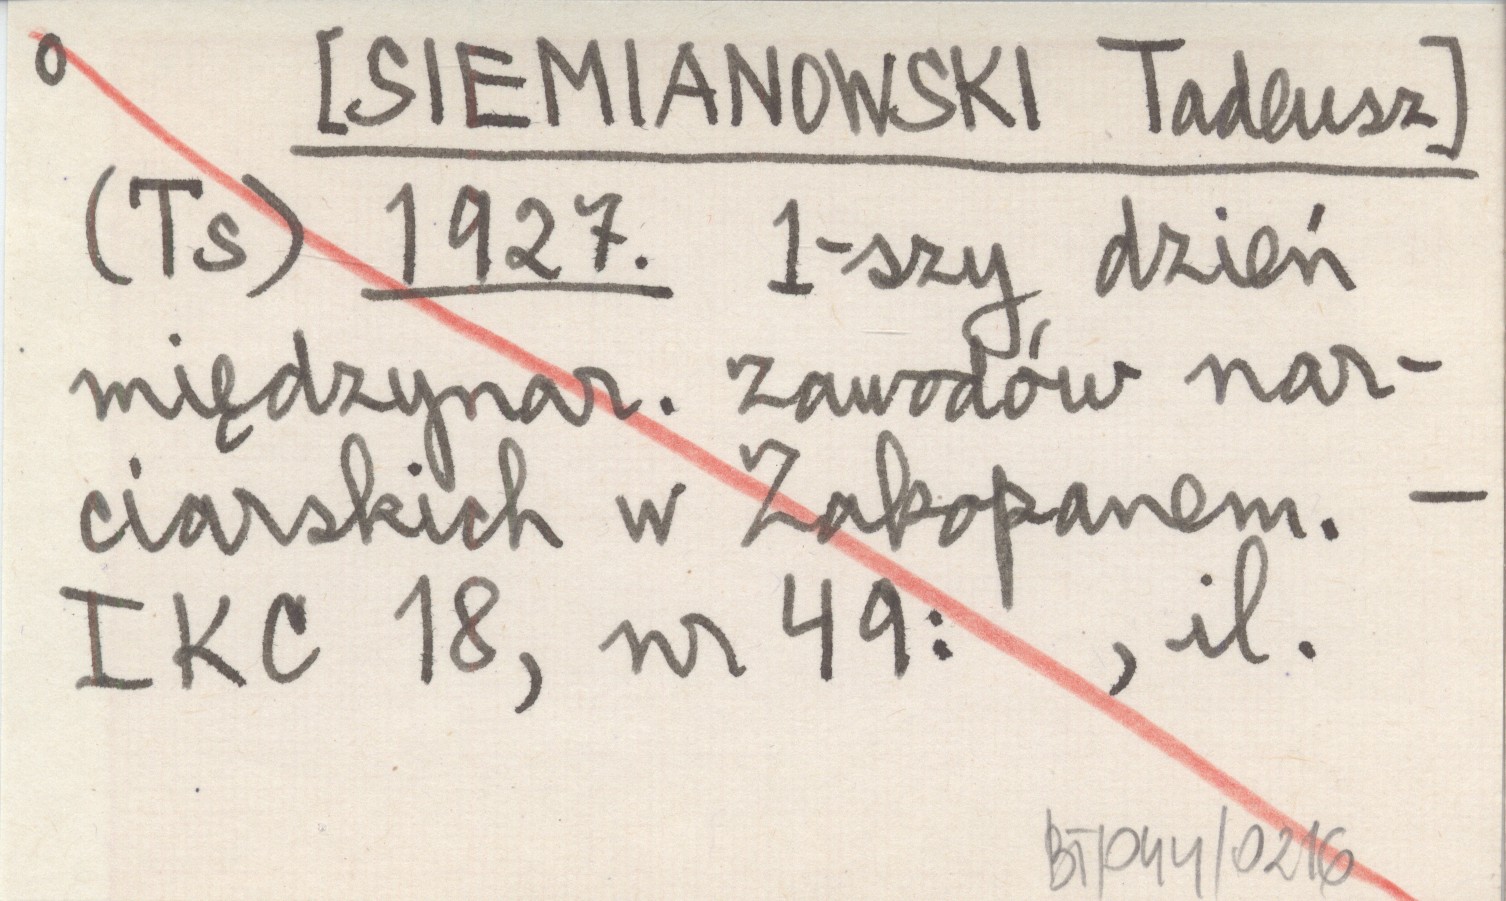 o [SIEMIANOWSKI Tadeusz]
(Ts) 1927. 1-szy dzień
międzynar. zawodów nar-
ciarskich w Zakopanem. —
IKC 18, nr 49: , il.
BT/044/0216